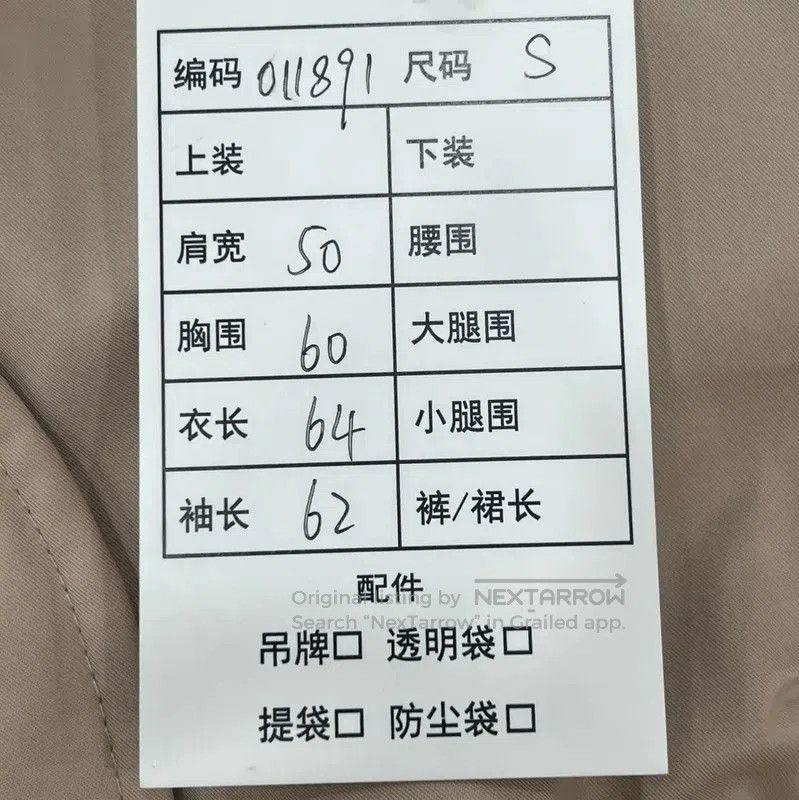 编码 011891 尺码 S
上装 下装
肩宽 50 腰围
胸围 60 大腿围
衣长 64 小腿围
袖长 62 裤/裙长
配件
Original listing by NEXTARROW
Search "NexTarrow" in Grailed app.
吊牌□ 透明袋□
提袋□ 防尘袋□